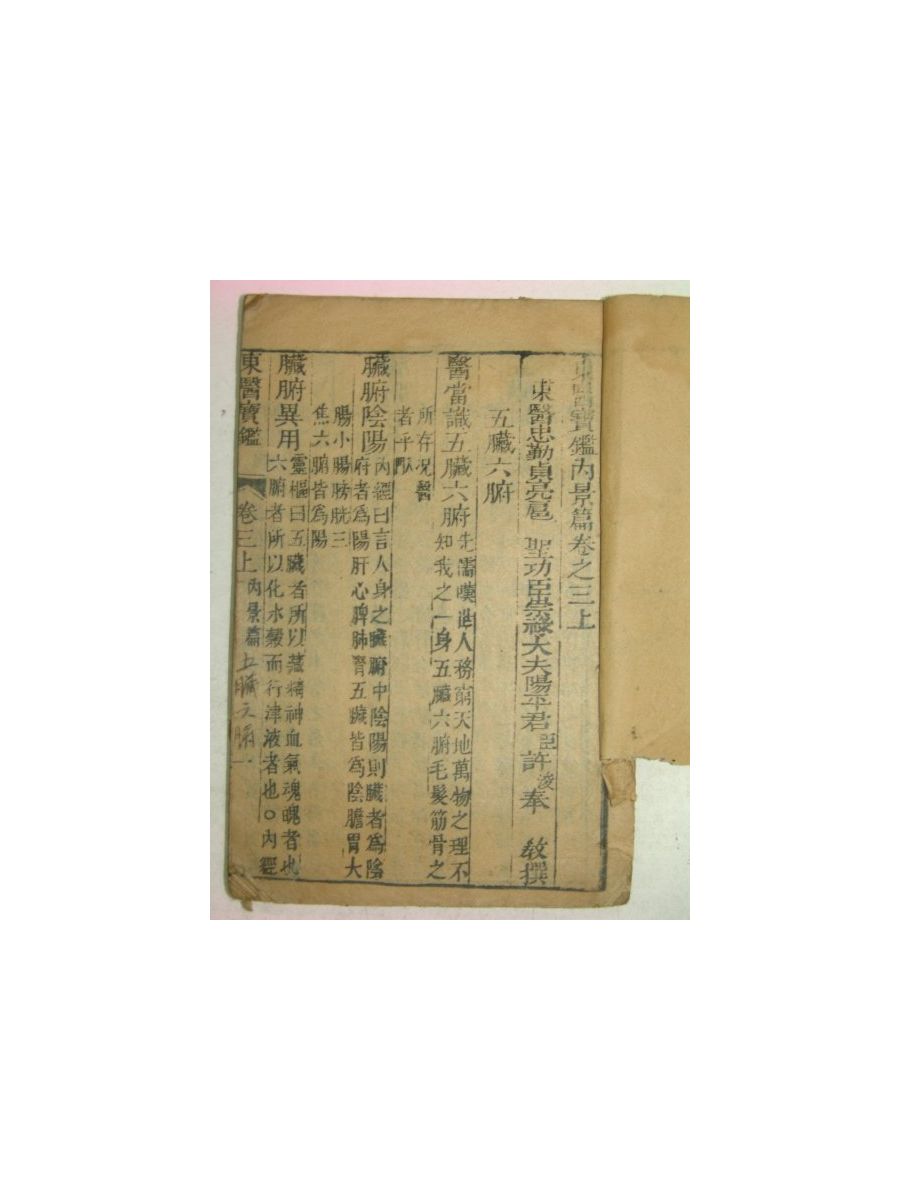 東醫寶鑑內景篇卷之三上
東醫忠勤貞亮扈 聖功臣崇祿大夫陽平君臣許浚奉 敎撰
五臟六腑
醫當識五臟六腑先儒嘆世人務窮天地萬物之理不
知我之一身五臟六腑毛髮筋骨之
所存况醫
者乎
臟腑陰陽內經曰言人身之臟腑中陰陽則臟者爲陰
府者爲陽肝心脾肺腎五臟皆爲陰膽胃大
腸小腸膀胱三
焦六腑皆爲陽
臟腑異用靈樞曰五臟者所以藏精神血氣魂魄者也
六腑者所以化水穀而行津液者也○內經
東醫寶鑑 卷三上 內景篇